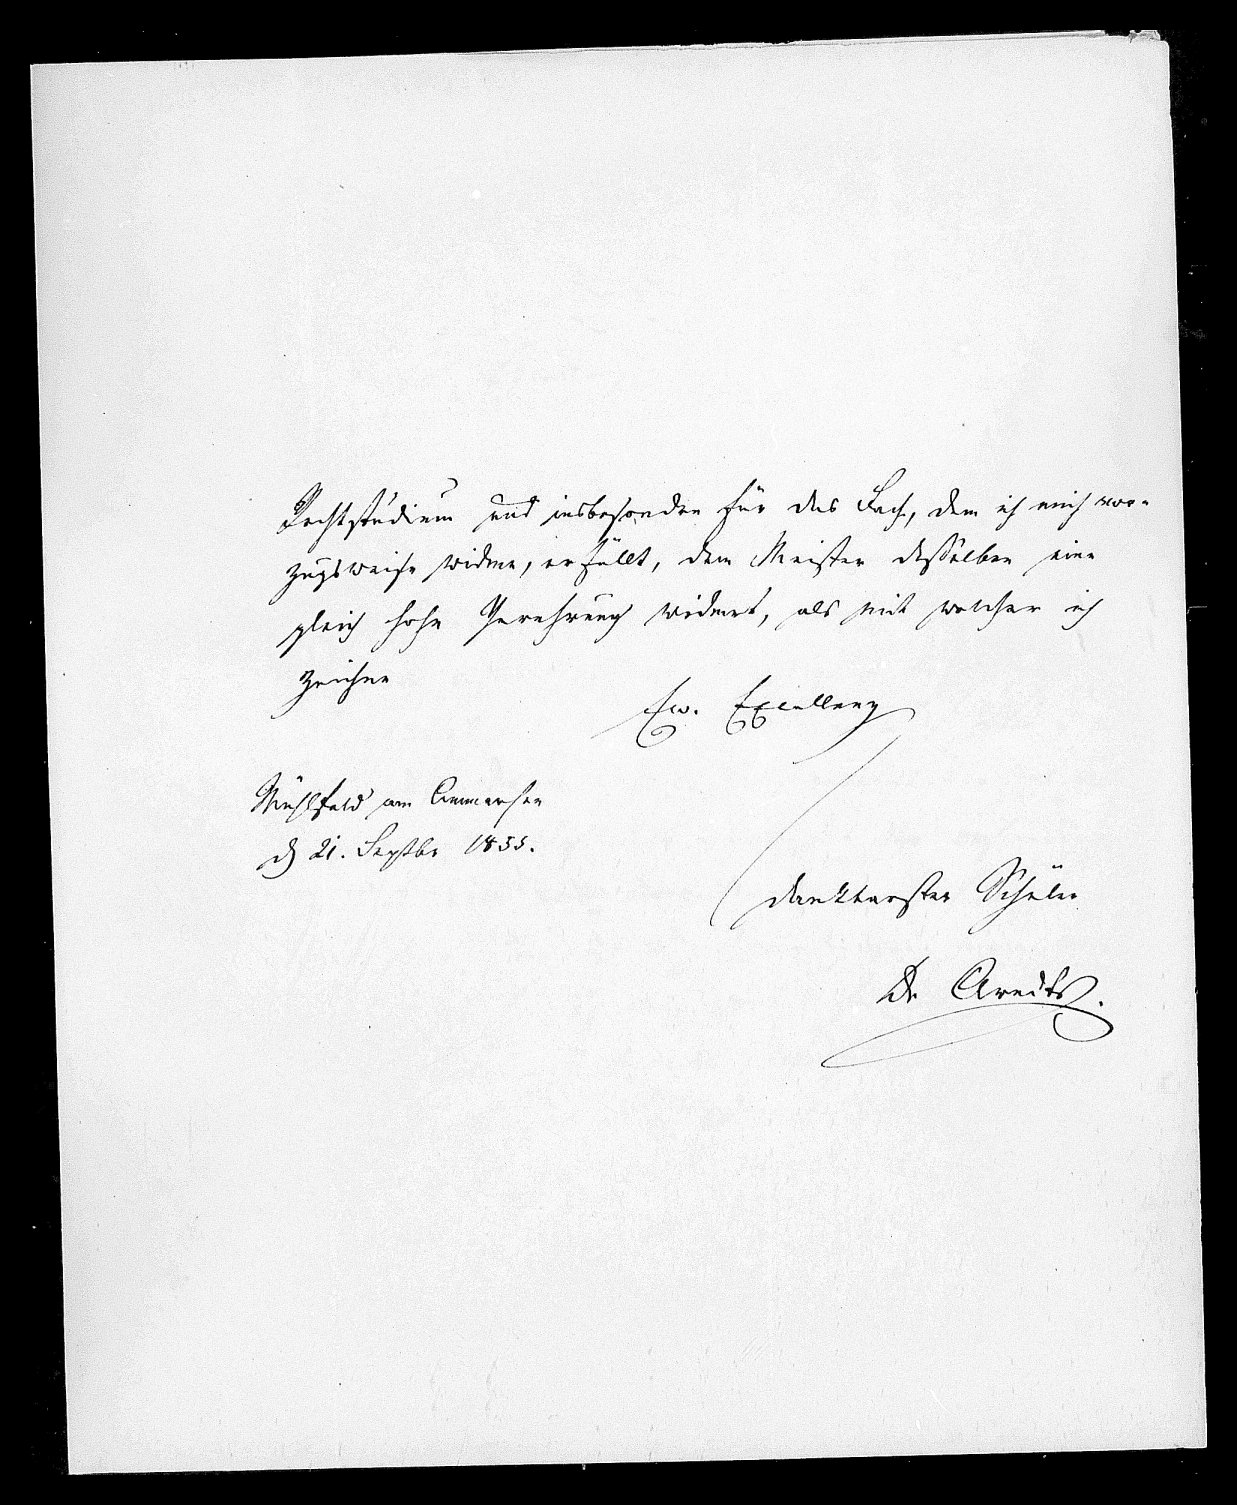 Rechtsstudium und insbesondre für das Fach, dem ich mich vor-
zugsweise widme, erfüllt, dem Meister desselben eine
gleich hohe Verehrung widmet, als mit welcher ich
zeichne
Ew. Excellenz
Mühlfeld am Ammersee
d. 21. Septbr 1855.
dankbarster Schüler
Dr Arndts.